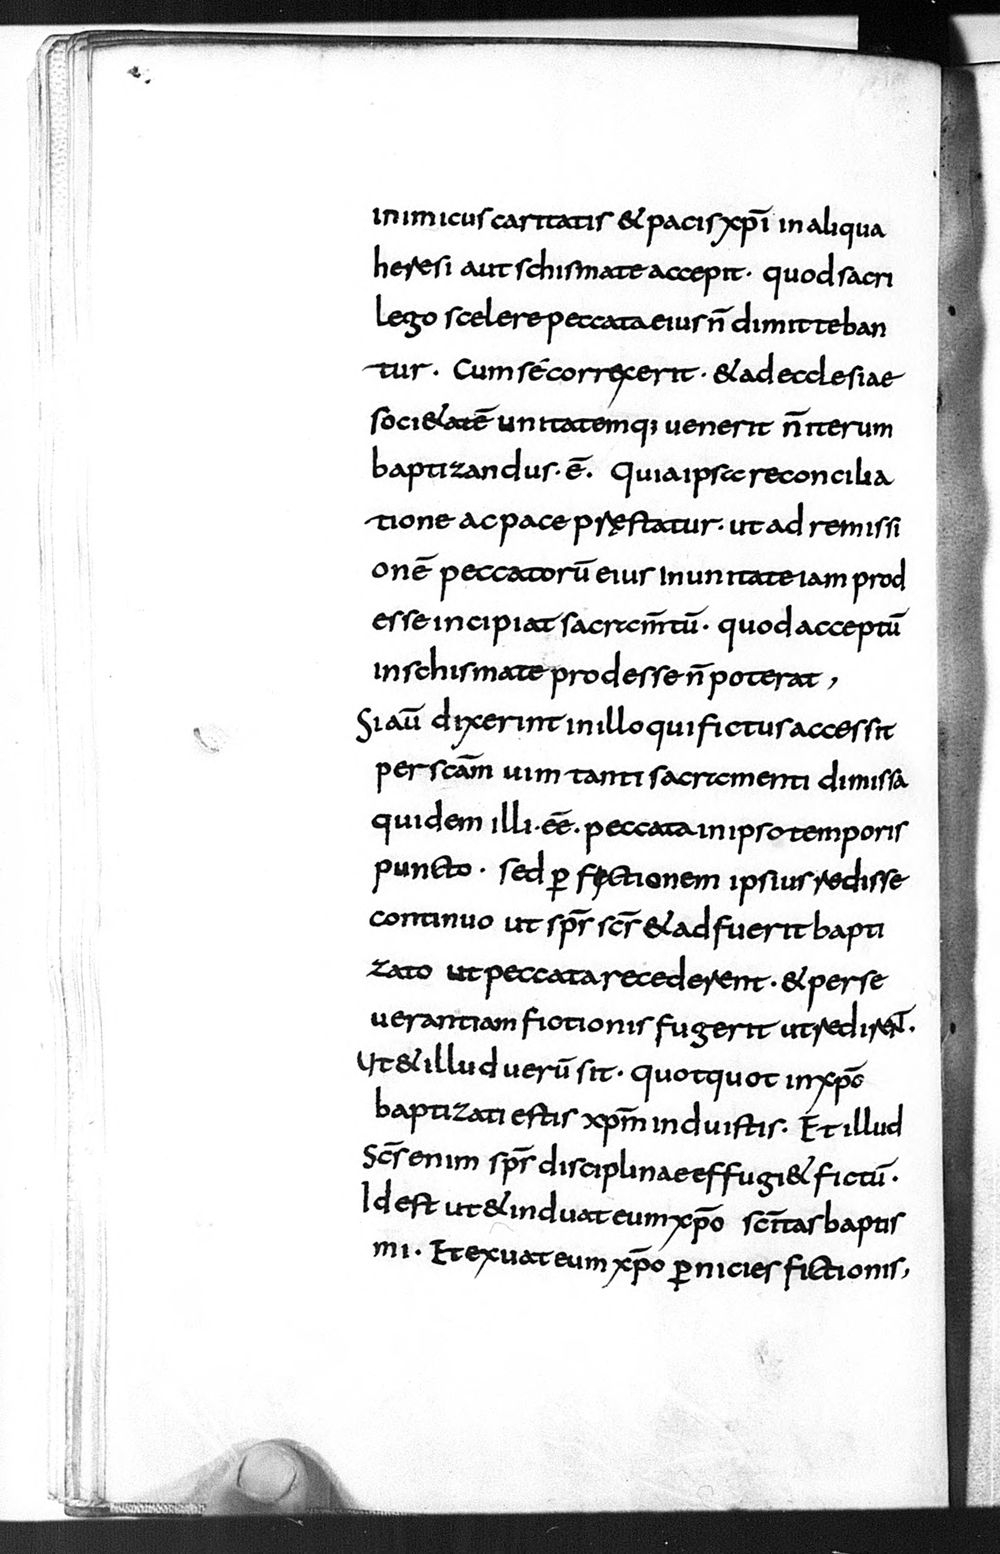 inimicus caritatis & pacis xp̄i in aliqua
heresi aut schismate accepit · quod sacri
lego scelere peccata eius n̄ dimitteban
tur · Cum sé correxerit · & ad ecclesiae
soci&atē unitatemq; uenerit n̄ iterum
baptizandus · ē · Quia ipsa reconcilia
tione ac pace pręstatur · ut ad remissi
onē peccatorū eius in unitate iam prod
esse incipiat sacram̄tū · quod acceptū
in schismate prodesse n̄ poterat ,
Si aū dixerint in illo qui fictus accessit
per scām uim tanti sacramenti dimissa
quidem illi · eē · peccata in ipso temporis
puncto · sed ꝑ fictionem ipsius redisse
continuo ut spr̄ scr̄ & adfuerit bapti
zato ut peccata recederent · & perse
uerantiam fictionis fugerit ut redirent ·
Ut & illud uerū sit · quotquot in xp̄o
baptizati estis xp̄m induistis · Et illud
Scs̄ enim spr̄ disciplinae effugi& fictū ·
Id est ut & induat eum xp̄o sc̄itas baptis
mi · Et exuat eum xp̄o ꝑnicies fictionis ,